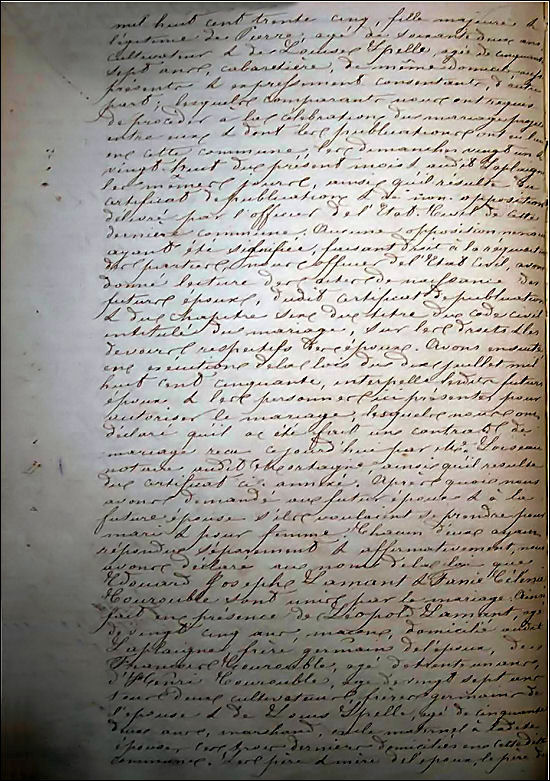 mil huit cent trente cinq, fille majeure &
légitime de Pierre, agé de soixante deux ans,
cultivateur & de Louise Spelle, agée de cinquante
sept ans, cabaretière, de même domicile, aussi
présents & expressément consentants, d'autre
part; lesquels comparants nous ont requis
de procéder à la célébration du mariage projeté
entre eux & dont les publications ont eu lieu
en cette commune, les dimanches vingt un &
vingt huit du présent mois & audit Laplaigne
les mêmes jours, ainsi qu'il résulte du
certificat de publication & de non opposition
délivré par l'officier de l'Etat Civil de cette
dernière commune. Aucune opposition ne nous
ayant été signifiée, faisant droit à la réquisition
des parties, nous officier de l'Etat Civil, avons
donné lecture des actes de naissance des
futurs époux, dudit certificat de publication
& du chapitre six du titre du code civil
intitulé du mariage, sur les droits & les
devoirs respectifs des époux. Avons ensuite
en exécution de la loi du dix juillet mil
huit cent cinquante, interpellé les dits futurs
époux & les personnes ici présentes pour
autoriser le mariage, lesquels nous ont
déclaré qu'il a été fait un contrat de
mariage reçu cejourd'hui par Me Loiseau
notaire audit Mortagne ainsi qu'il résulte
du certificat ci-annexé. Après quoi nous
avons demandé au futur époux & à la
future épouse s'ils voulaient se prendre pour
mari & pour femme, Chacun d'eux ayant
répondu séparément & affirmativement, nous
avons déclaré au nom de la loi que
Edouard Joseph Lamant & Fanie Céline
Hourouble sont unis par le mariage. Ainsi
fait en présence de Léopold Lamant, agé
de vingt cinq ans, maçon, domicilié audit
Laplaigne, frère germain de l'époux, de
François Hourouble, agé de trente un ans,
d'Henri Hourouble, agé de vingt sept ans
tous deux cultivateurs, frères germains de
l'épouse & de Louis Spelle, agé de cinquante
deux ans, marchand, oncle maternel à la dite
épouse, les trois derniers domiciliés en cette dite
commune. Les père & mère de l'époux, le père de